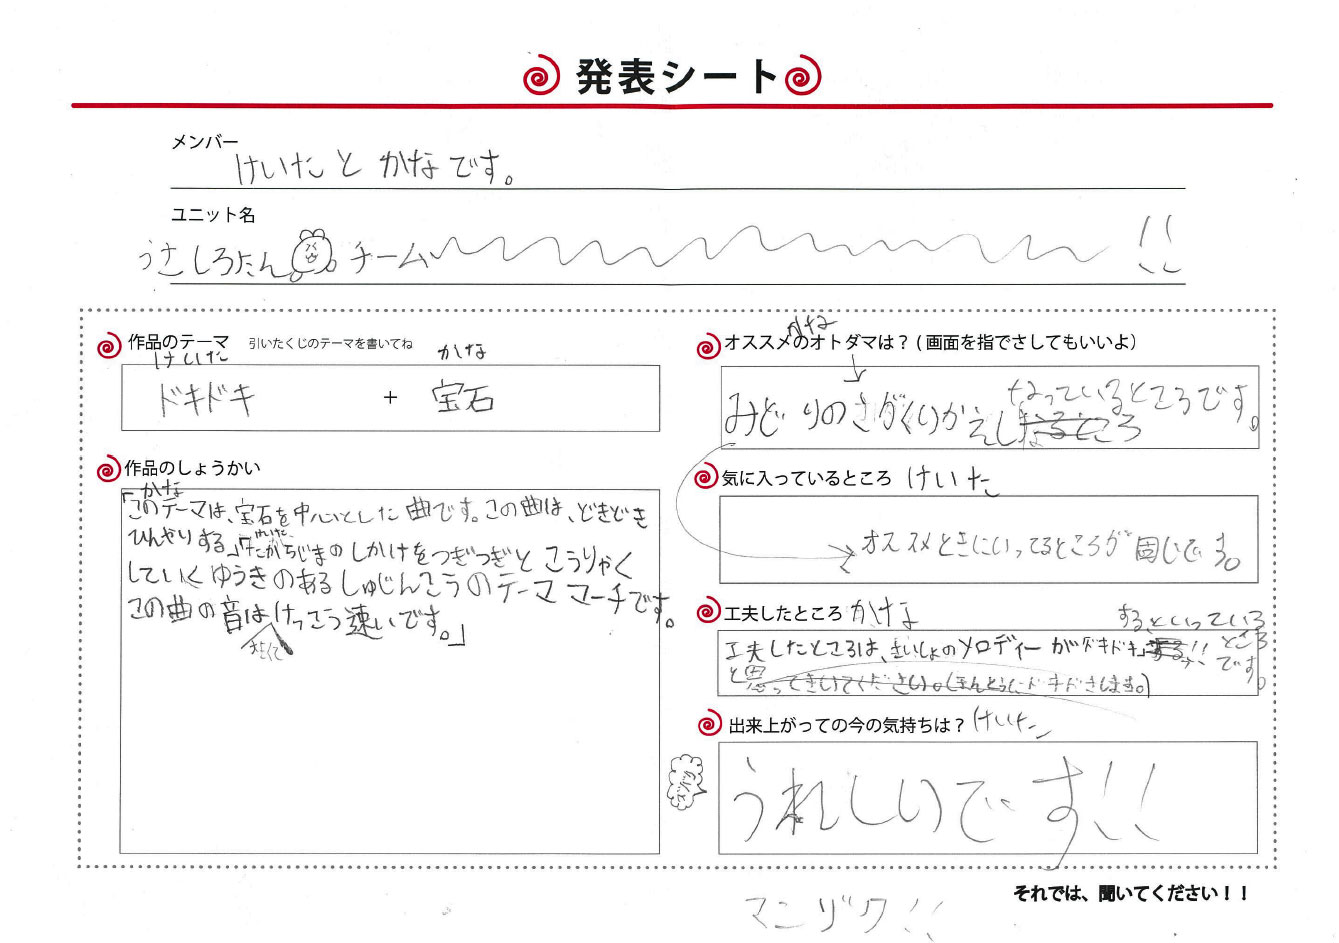 発表シート
メンバー
けいたと かなです。
ユニット名
うさしろたん チーム !!
作品のテーマ 引いたくじのテーマを書いてね
けいた かな
ドキドキ + 宝石
作品のしょうかい
かな
「このテーマは、宝石を中心とした曲です。この曲は、どきどき
ひんやりする」
けいた
「たからじまのしかけをつぎつぎと こうりゃく
していくゆうきのあるしゅじんこうのテーママーチです。
この曲の音はけっこう速いです。」
かな
オススメのオトダマは？（画面を指でさしてもいいよ）
みどりの くりかえしに
なっているところです。
気に入っているところ けいた
オススメときにいってるところが同じです。
工夫したところ かな
工夫したところは、さいしょのメロディーがドキドキ
するといっている
ところ
です。
と思ってきいてください。(ほんとうにドキドキします。)
出来上がっての今の気持ちは？ けいた
うれしいです!!
それでは、聞いてください！！
マンゾク!!